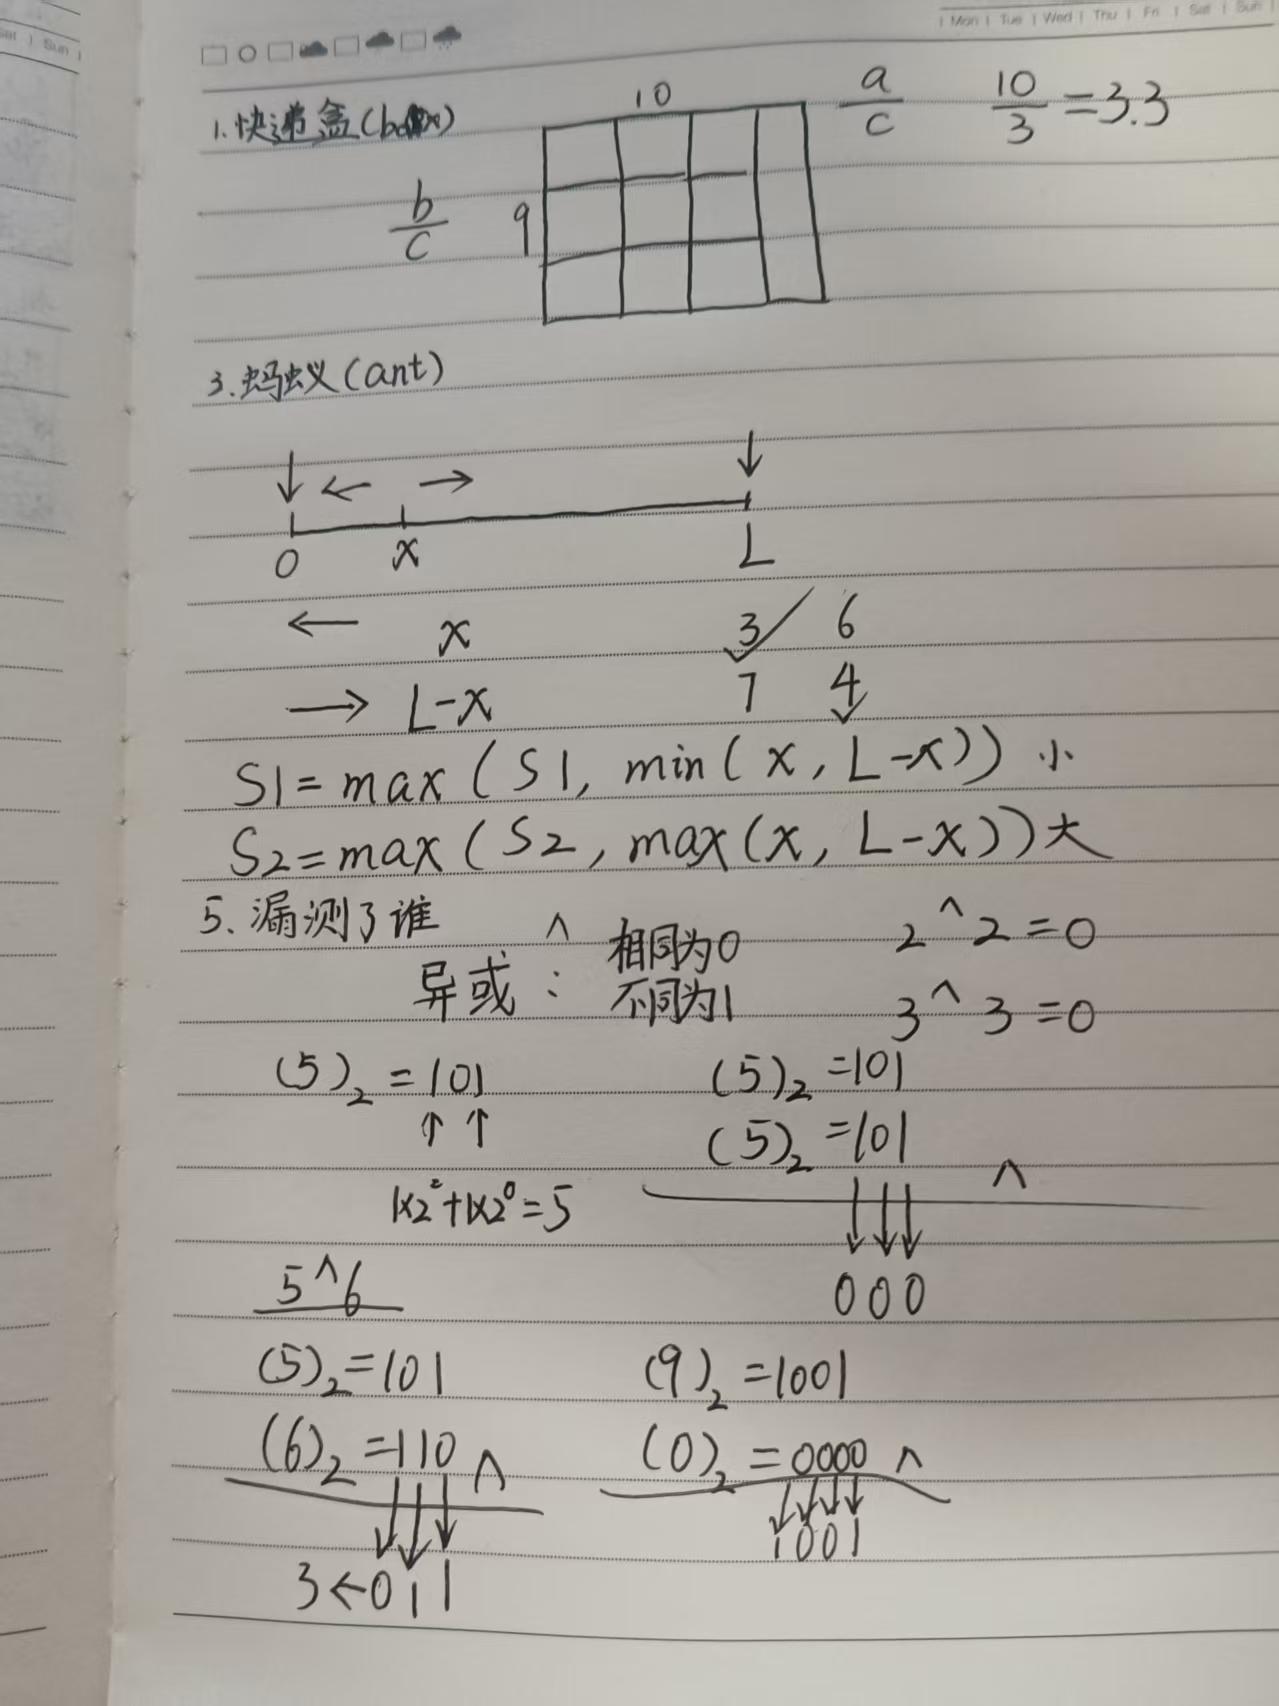 Sat | Sun |
| Mon | Tue | Wed | Thu | Fri | Sat | Sun |
1.快递盒(box)
10
a/c
10/3=3.3
b/c
9
3.蚂蚁(ant)
← →
0 x L
← x 3 6
→ L-x 7 4
S1=max(S1, min(x, L-x)) 小
S2=max(S2, max(x, L-x)) 大
5.漏测了谁
异或: ^ 相同为0
不同为1
2^2=0
3^3=0
(5)₂=101
1×2²+1×2⁰=5
(5)₂=101
(5)₂=101
^
000
5^6
(5)₂=101
(6)₂=110 ^
3←011
(9)₂=1001
(0)₂=0000 ^
1001